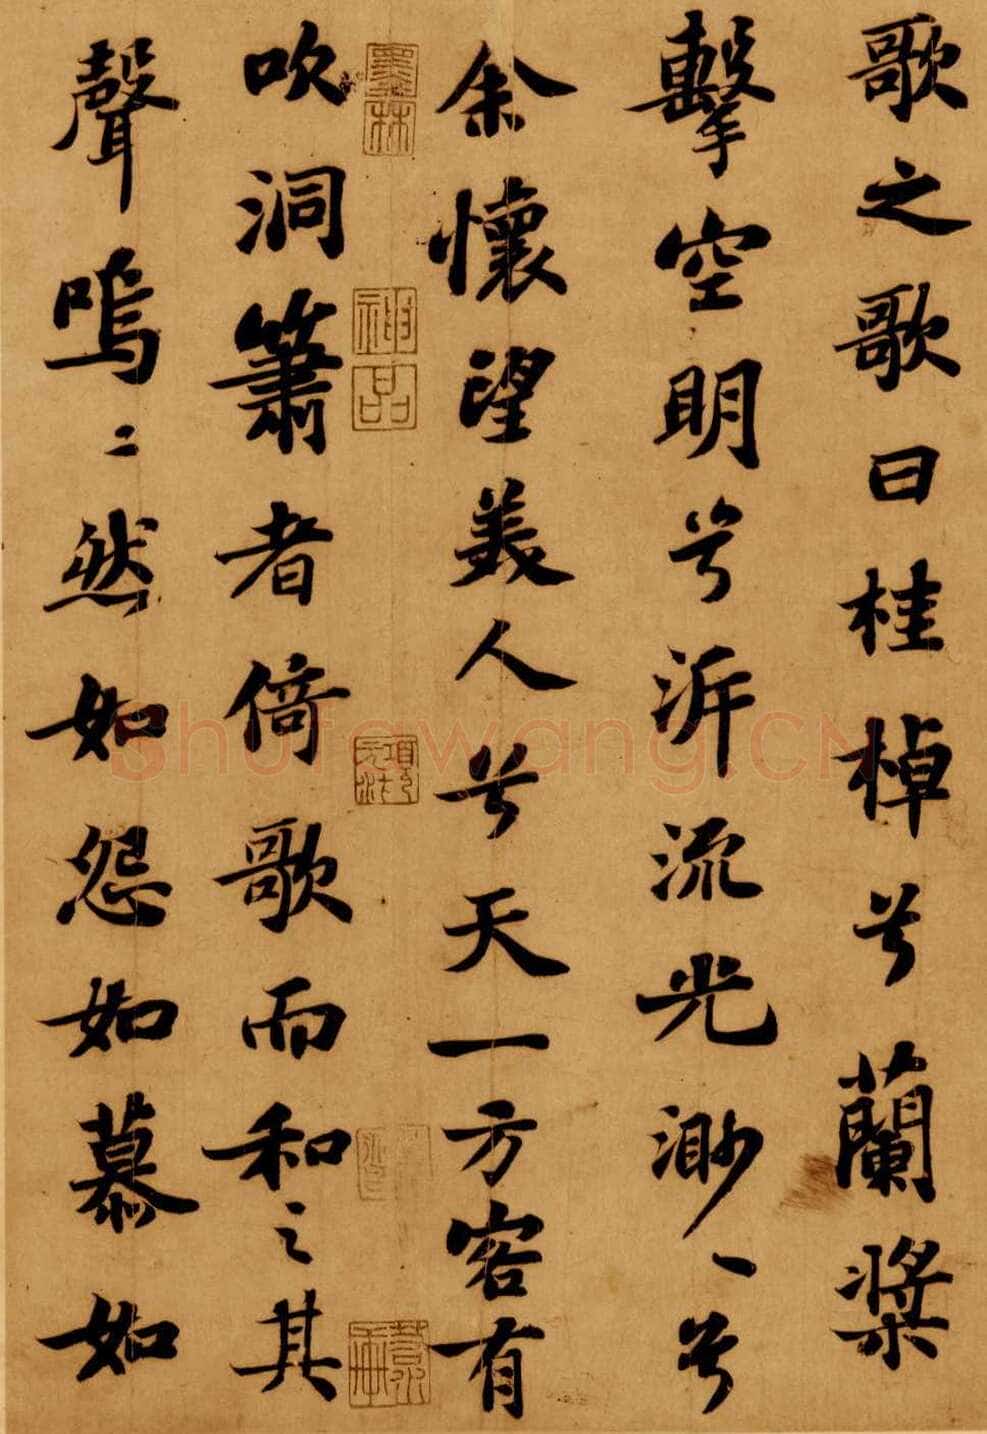 歌之歌曰桂棹兮蘭槳
擊空明兮泝流光渺〻兮
余懷望美人兮天一方客有
吹洞簫者倚歌而和之其
聲嗚〻然如怨如慕如
墨林
神品
shufawang.CN